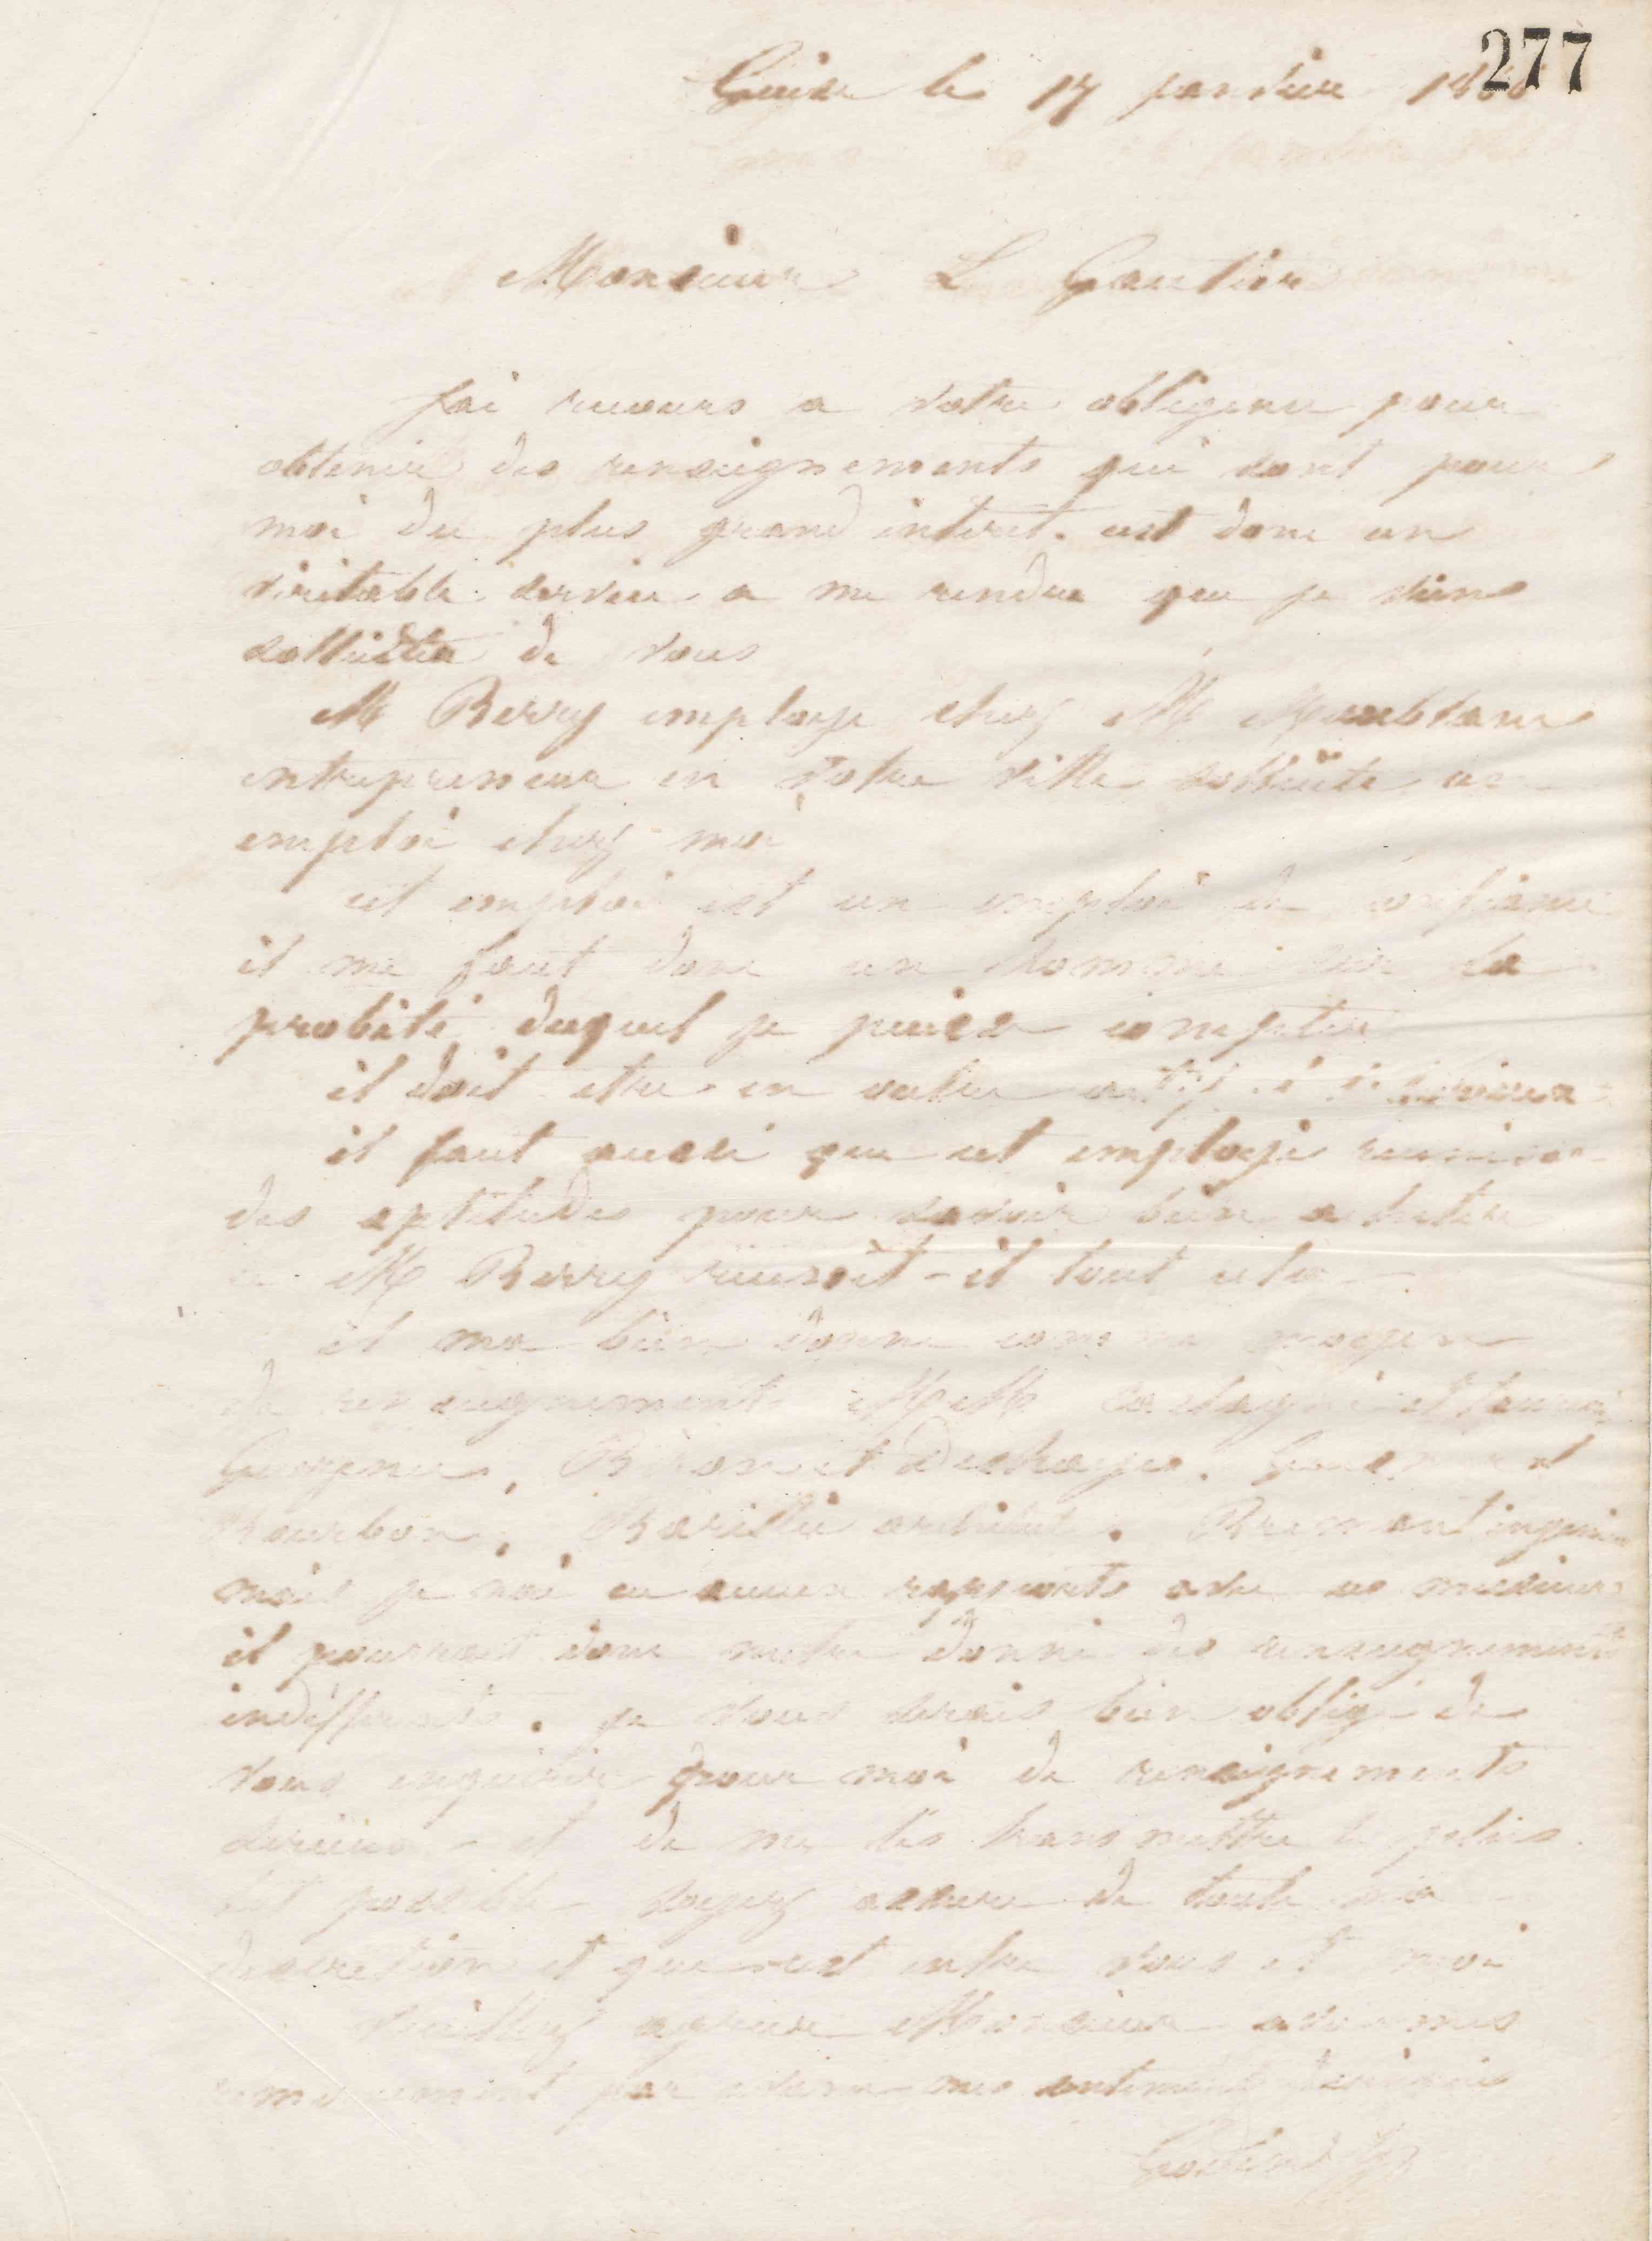 277
Guise le 17 janvier
Monsieur L Gautier
J'ai recours a votre obligence pour
obtenir des renseignements qui sont pour
moi du plus grand interet. cest donc un
veritable service a me rendre que je viens
solliciter de vous
M Berry employe chez M Monblanc
entrepreneur en votre ville sollicite un
emploi chez moi
cet emploi est un emploi de confiance
il me faut donc un homme sur la
probité duquel je puisse compter
il doit etre en outre actif
il faut aussi que cet employé reunisse
des aptitudes pour savoir bien acheter
M Berry réunoit-il tout cela
il ma bien donne comme moyen
de renseignement MM
Biron et Deshayes. et
Bourbon, architecte. ingenieur
mais je nai eu aucun rapports avec ces messieurs
il pourrait donc metre donné des renseignements
indifferents. je vous serais bien obligé de
vous enquerir pour moi de renseignements
serieux et de me les transmettre le plus
tot possible soyez assuré de toute ma
discretion et que cest entre vous et moi
Veuillez agreer Monsieur avec mes
remerciement par avance mes sentiments
Godin